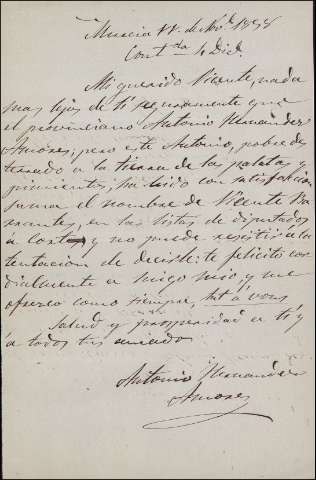 Murcia 11. de Nov. 1898
Cont.da 4 Dic.
Mi querido Vicente, nada
mas lejos de ti seguramente que
el provinciano Antonio Hernández
Amores; pero este Antonio, pobre des
terrado a la tierra de las patatas y
pimientos, ha leido con satisfacción
suma el nombre de Vicente Ba
rrantes, en las listas de diputados
a Cortes y no puede resistir a la
tentación de decirle: te felicito cor
dialmente amigo mio y me
ofrezco como siempre, tut á vous
Salud y prosperidad a ti y
á todos tus
Antonio Hernández
Amores